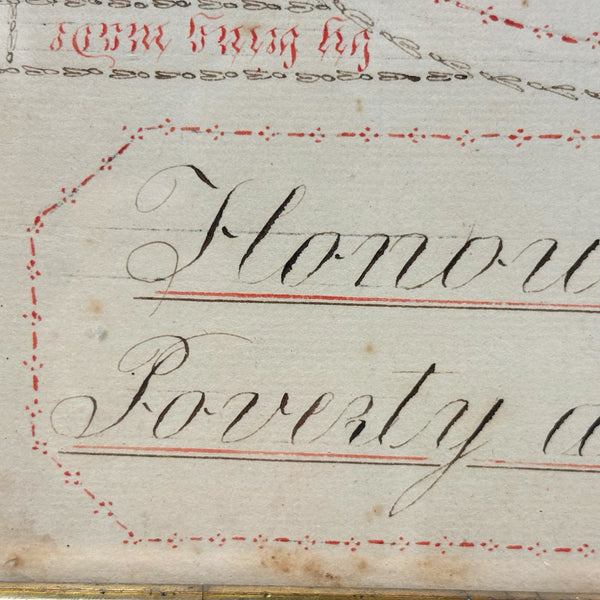 Honou
Poverty a